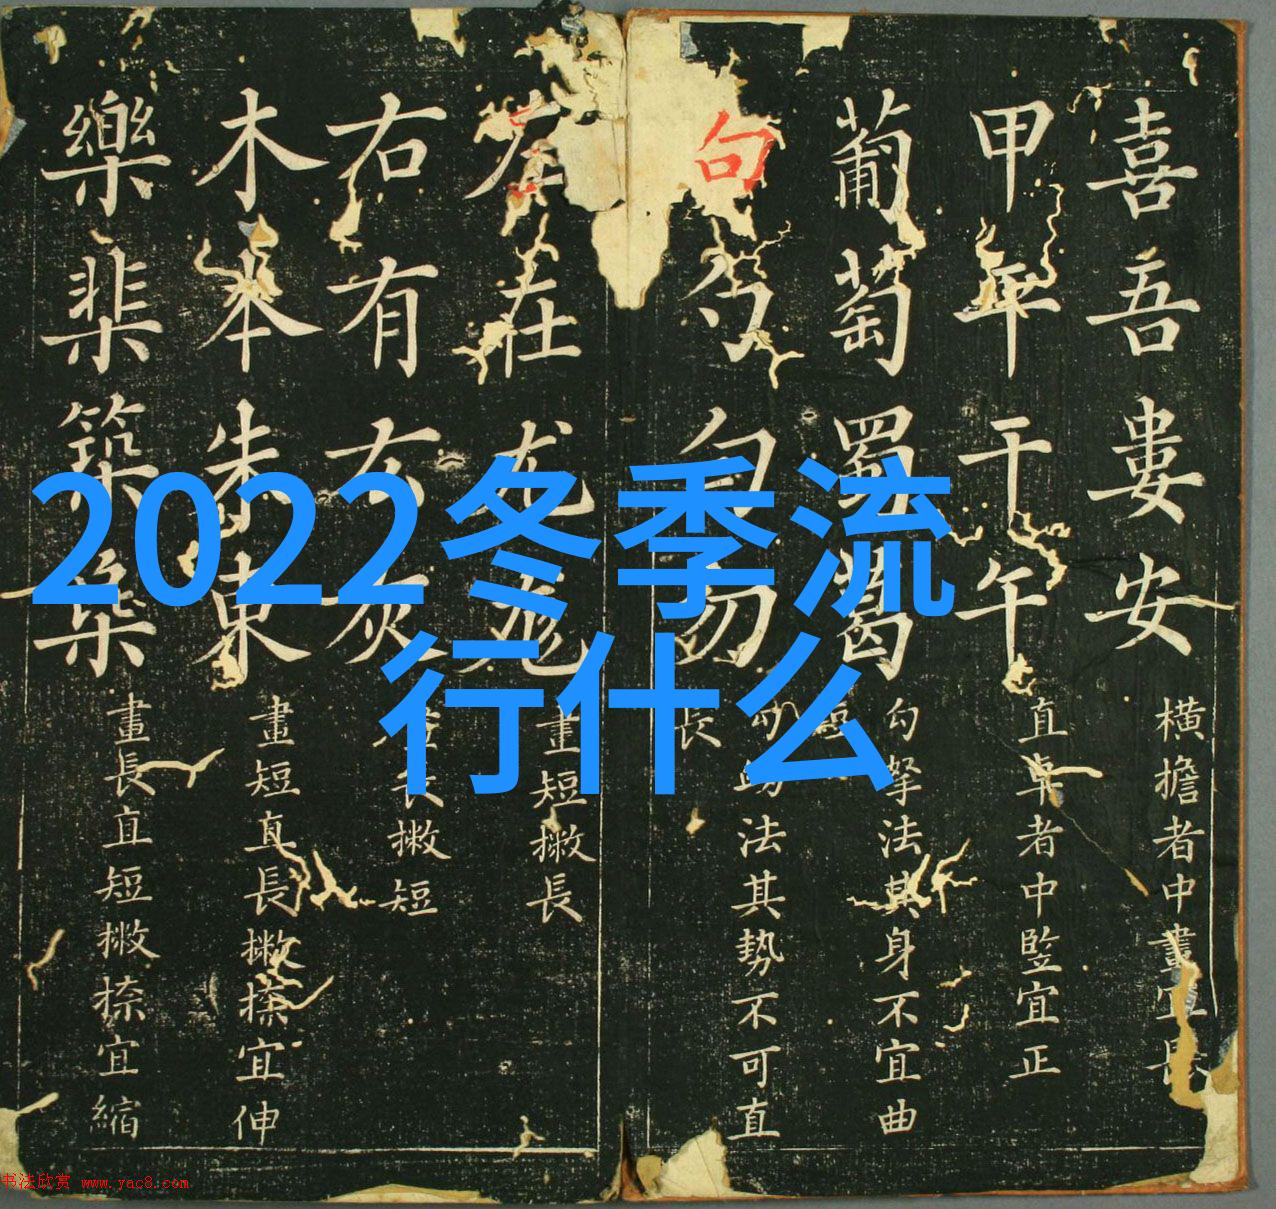 喜吾婁安
橫擔者中畫宜長
甲平干午
直卓者中竪宜正
葡萄蜀葛
勾拏法其身不宜曲
句勹勾勿
勾踢法其势不可直
長
左在尤尨
畫短撇長
右有厷灰
畫長撇短
木本朱東
畫短直長撇捺宜伸
樂棐築
畫長直短撇捺宜縮
2022冬季流
行什么
书法欣赏 www.yac8.com